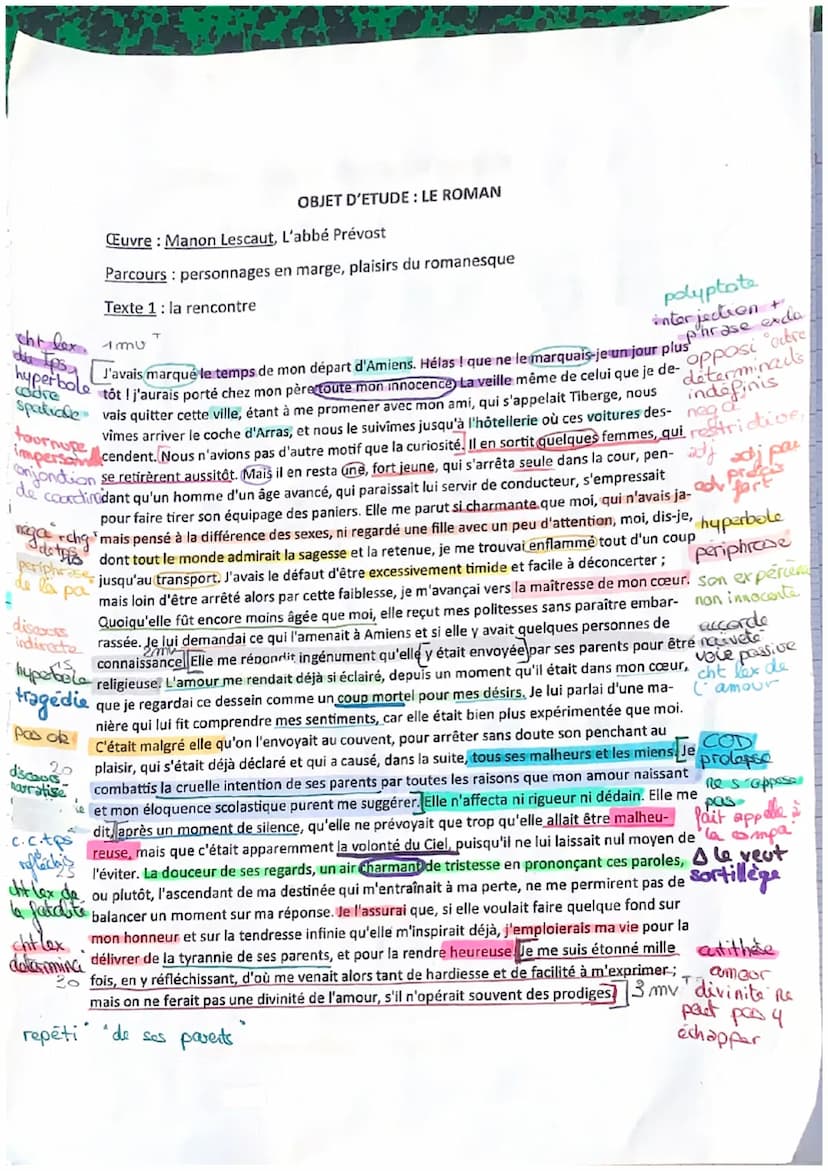 OBJET D'ETUDE : LE ROMAN
Œuvre : Manon Lescaut, L'abbé Prévost
Parcours : personnages en marge, plaisirs du romanesque
Texte 1 : la rencontre
1mvT
J'avais marqué le temps de mon départ d'Amiens. Hélas ! que ne le marquais-je un jour plus
tôt ! j'aurais porté chez mon père toute mon innocence. La veille même de celui que je de-
vais quitter cette ville, étant à me promener avec mon ami, qui s'appelait Tiberge, nous
vîmes arriver le coche d'Arras, et nous le suivîmes jusqu'à l'hôtellerie où ces voitures des-
cendent. Nous n'avions pas d'autre motif que la curiosité. Il en sortit quelques femmes, qui
se retirèrent aussitôt. Mais il en resta une, fort jeune, qui s'arrêta seule dans la cour, pen-
dant qu'un homme d'un âge avancé, qui paraissait lui servir de conducteur, s'empressait
pour faire tirer son équipage des paniers. Elle me parut si charmante que moi, qui n'avais ja-
mais pensé à la différence des sexes, ni regardé une fille avec un peu d'attention, moi, dis-je,
dont tout le monde admirait la sagesse et la retenue, je me trouvai enflammé tout d'un coup
jusqu'au transport. J'avais le défaut d'être excessivement timide et facile à déconcerter ;
mais loin d'être arrêté alors par cette faiblesse, je m'avançai vers la maîtresse de mon cœur.
Quoiqu'elle fût encore moins âgée que moi, elle reçut mes politesses sans paraître embar-
rassée. Je lui demandai ce qui l'amenait à Amiens et si elle y avait quelques personnes de
2mv
connaissance. Elle me répondit ingénument qu'elle y était envoyée par ses parents pour être
religieuse. L'amour me rendait déjà si éclairé, depuis un moment qu'il était dans mon cœur,
que je regardai ce dessein comme un coup mortel pour mes désirs. Je lui parlai d'une ma-
nière qui lui fit comprendre mes sentiments, car elle était bien plus expérimentée que moi.
C'était malgré elle qu'on l'envoyait au couvent, pour arrêter sans doute son penchant au
plaisir, qui s'était déjà déclaré et qui a causé, dans la suite, tous ses malheurs et les miens. Je
combattis la cruelle intention de ses parents par toutes les raisons que mon amour naissant
et mon éloquence scolastique purent me suggérer. Elle n'affecta ni rigueur ni dédain. Elle me
dit, après un moment de silence, qu'elle ne prévoyait que trop qu'elle allait être malheu-
reuse, mais que c'était apparemment la volonté du Ciel, puisqu'il ne lui laissait nul moyen de
l'éviter. La douceur de ses regards, un air charmant de tristesse en prononçant ces paroles,
ou plutôt, l'ascendant de ma destinée qui m'entraînait à ma perte, ne me permirent pas de
balancer un moment sur ma réponse. Je l'assurai que, si elle voulait faire quelque fond sur
mon honneur et sur la tendresse infinie qu'elle m'inspirait déjà, j'emploierais ma vie pour la
délivrer de la tyrannie de ses parents, et pour la rendre heureuse. Je me suis étonné mille
fois, en y réfléchissant, d'où me venait alors tant de hardiesse et de facilité à m'exprimer ;
mais on ne ferait pas une divinité de l'amour, s'il n'opérait souvent des prodiges.
3mvT
cht lex
du Tps
hyperbole
cadre
spatiale
tournure
impersonn
conjonction
de coordi
néga° + chg
de tps
periphrase
de la pa
discours
indirecte
15
hyperbole
tragédie
pas ok
20
discours
narratisé
c.c.tps
réfléchis
25
cht lex de
la fatalité
cht lex
determina°
30
repéti° "de ses parents"
polyptote
interjection +
phrase excla
opposi° entre
déterminants
indéfinis
nega°
restrictive
adj
adv fort
hyperbole
périphrase
son expérien
non innocente
accorde
naïveté
voie passive
cht lex de
l'amour
COD
prolepse
ne s'oppose
pas
fait appelle à
la compa°
Δ le veut
sortilège
antithèse
amour
divinité ne
peut pas y
échapper